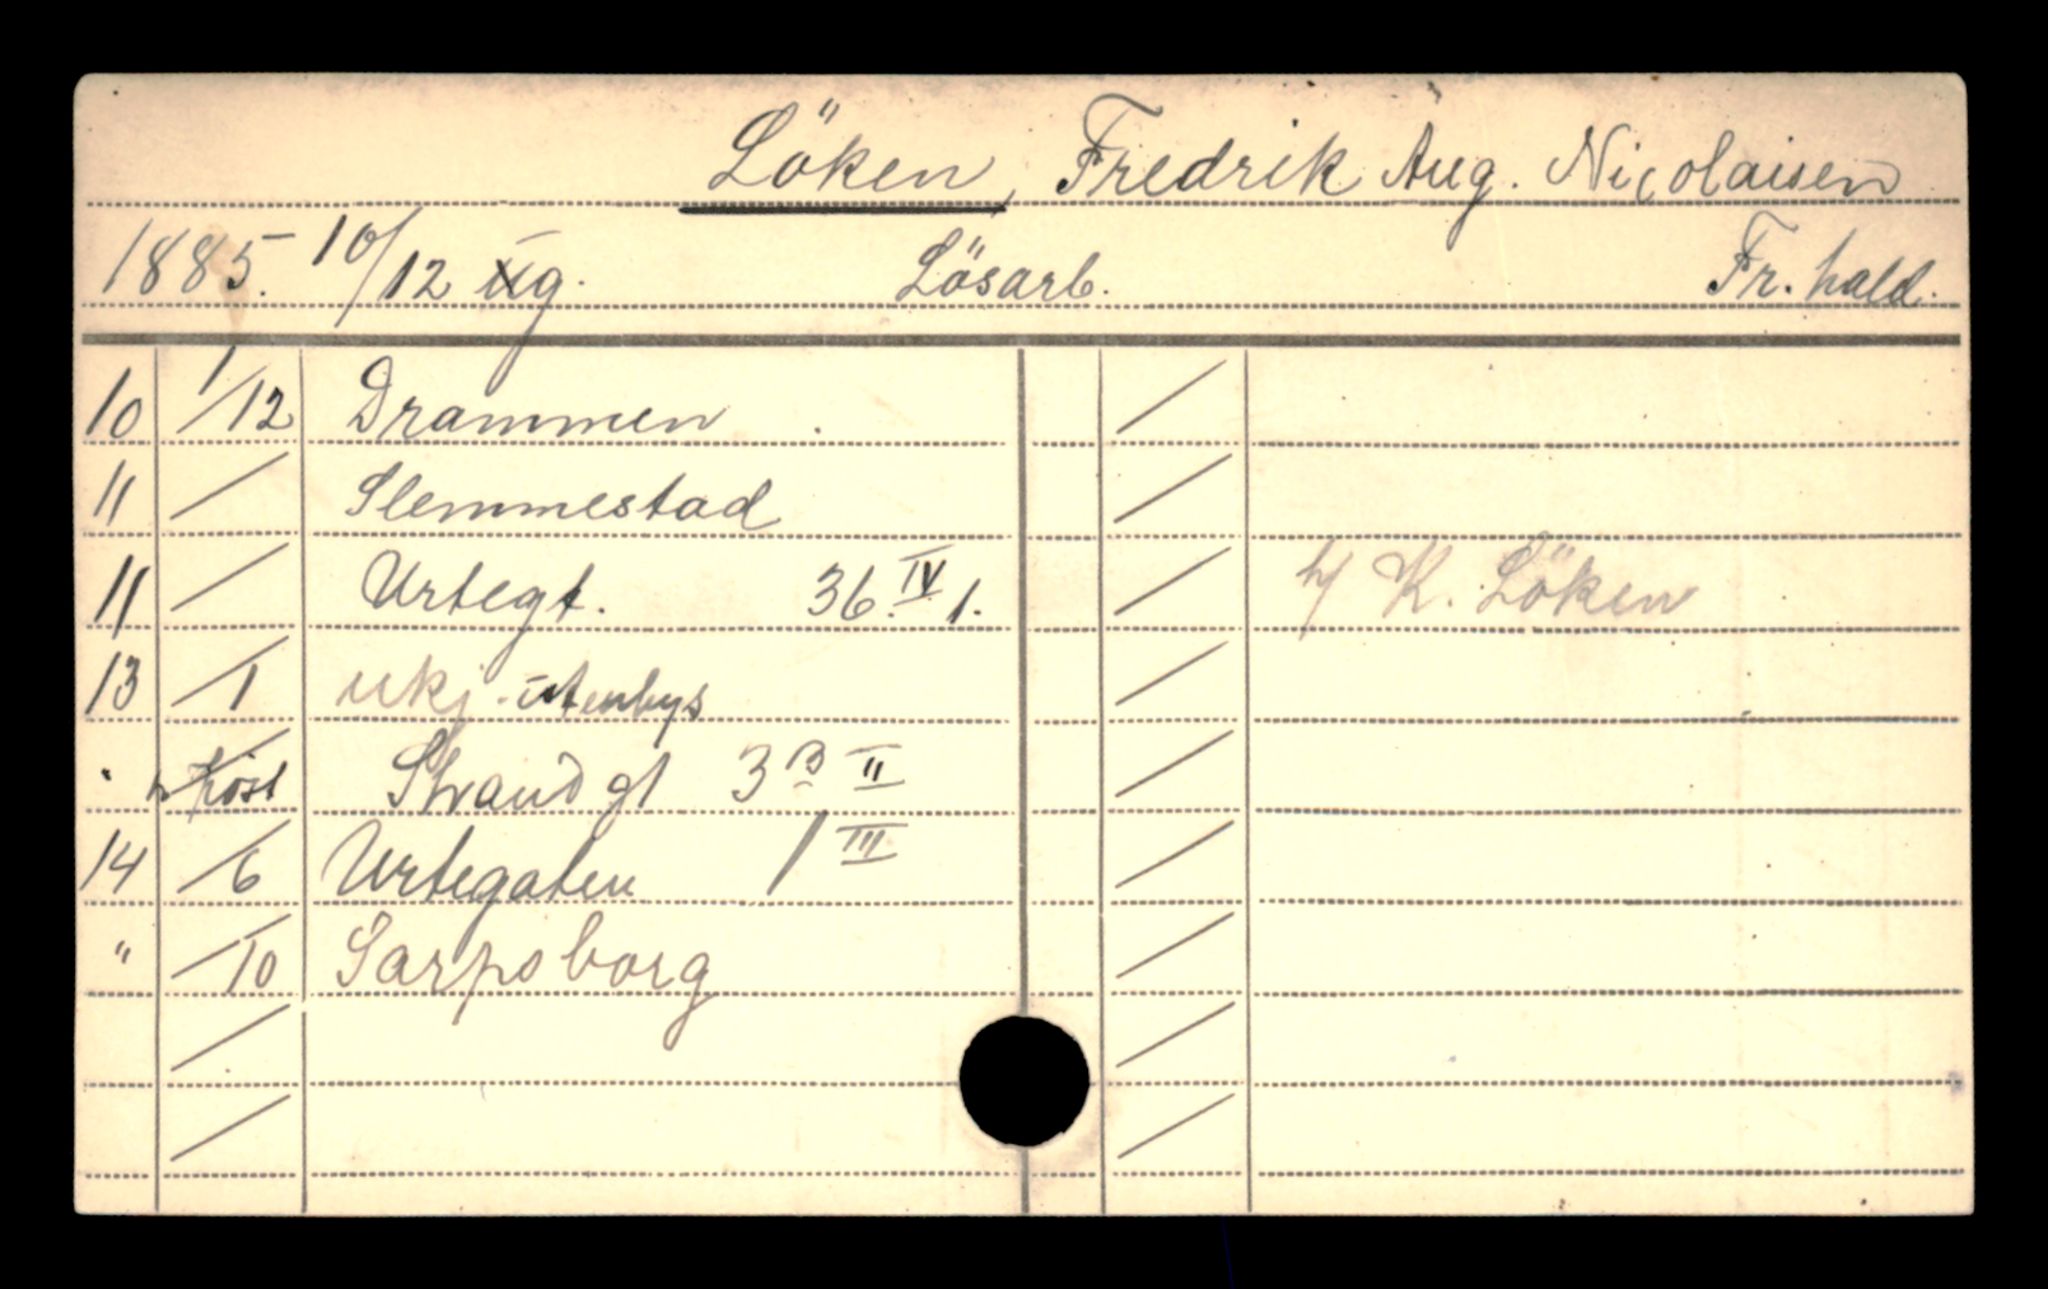 Löken, Fredrik Aug. Nicolaisen
1885. 10/12 ug. Lösarb. Fr.hald.
10 1/12 Drammen
11 / Slemmestad
11 / Urtegt. 36. IV 1. h/ K. Löken
13 /1 ukj. utenbys
" höst Strandgt 3 B II
14 /6 Urtegaten 1 III
" /10 Sarpsborg